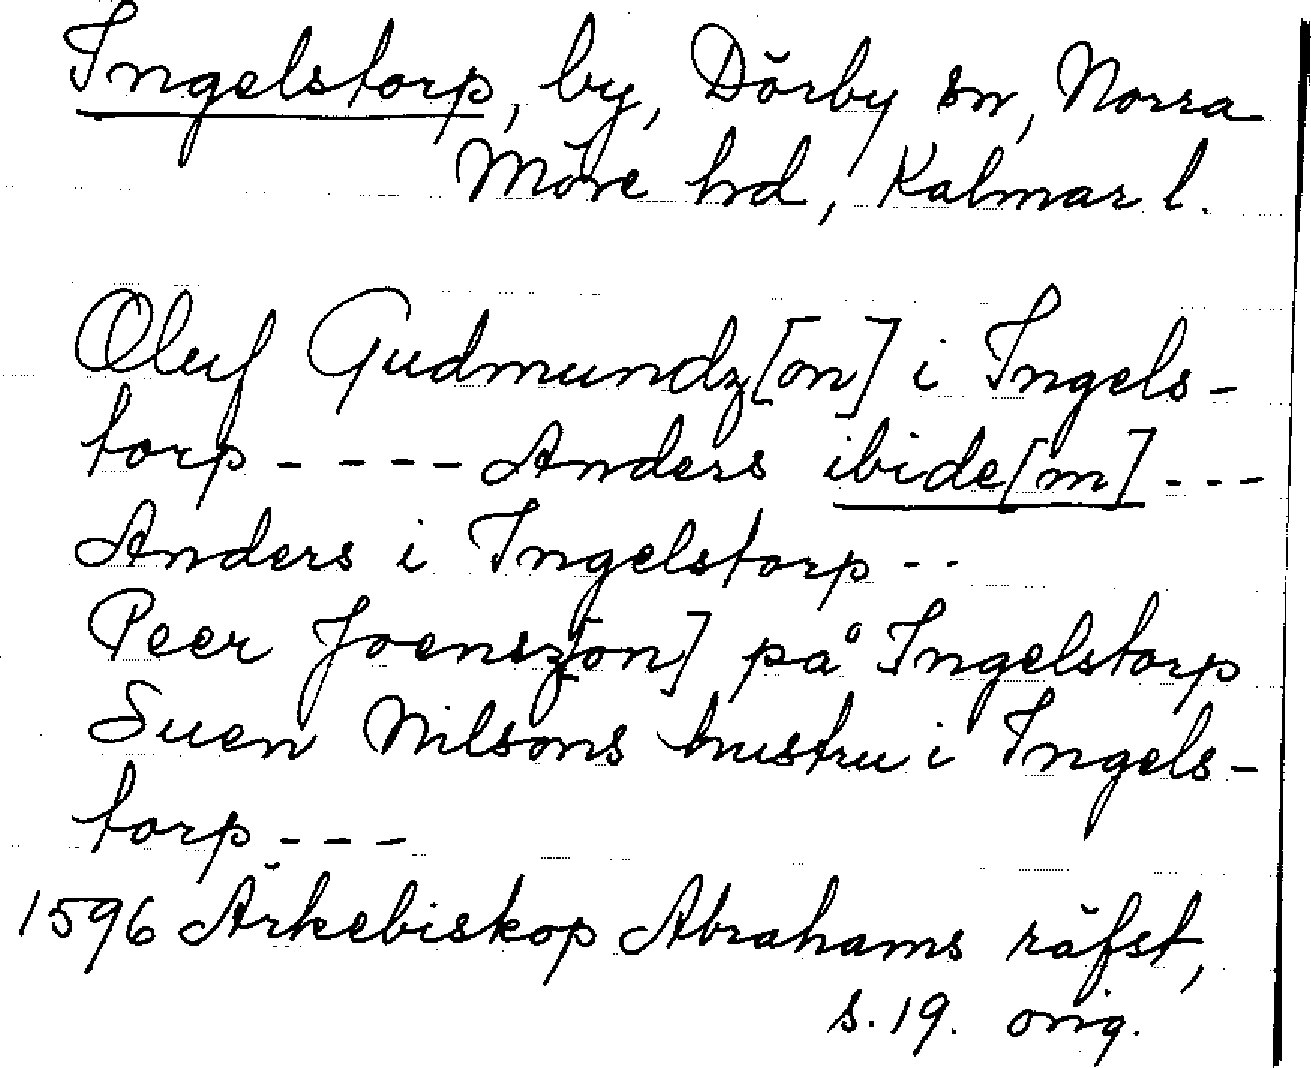 Ingelstorp, by, Dörby sn, Norra
Möre hd, Kalmar l.
Oluf Gudmundz[on] i Ingels-
torp - - - - Anders ibide[m] - - -
Anders i Ingelstorp - -
Peer Joensz[on] på Ingelstorp
Suen Nilsons hustru i Ingels-
torp - - -
1596 Ärkebiskop Abrahams räfst,
s. 19. orig.